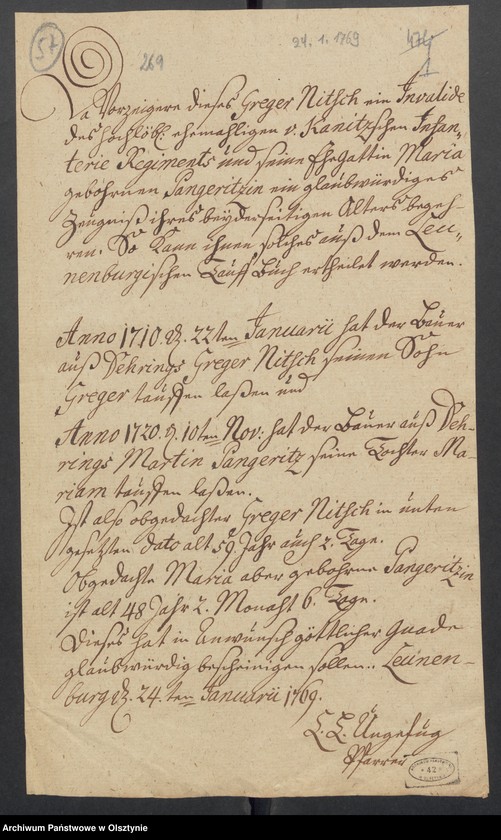 57
269
24. 1. 1769
474
1
Da Vorzeigere dieses Greger Nitsch ein Invalide
des hochlöbl. ehemahligen v. Kanitzschen Infan„
terie Regiments und seine Ehegattin Maria
gebohrnen Pangeritzin ein glaubwürdiges
Zeugniß ihres beyderseitigen Alters begeh„
ren. So kann ihnen solches auß dem Leu„
nenburgischen Tauff Buch ertheilet werden.
Anno 1710. d. 22ten Januarii hat der Bauer
auß Vehrings Greger Nitsch seinen Sohn
Greger tauffen laßen und
Anno 1720. d. 10ten Nov: hat der Bauer auß Veh„
rings Martin Pangeritz seine Tochter Ma„
riam tauffen laßen.
Ist also obgedachter Greger Nitsch in unten
gesetzten dato alt 59. Jahr auch 2. Tage.
Obgedachte Maria aber gebohrne Pangeritzin
ist alt 48 Jahr 2. Monaht 6. Tage.
Dieses hat in Anwünsch göttlicher Gnade
glaubwürdig bescheinigen sollen. Leunen„
burg d. 24.ten Januarii 1769.
Ungefug
Pfarrer
42
Archiwum Państwowe w Olsztynie